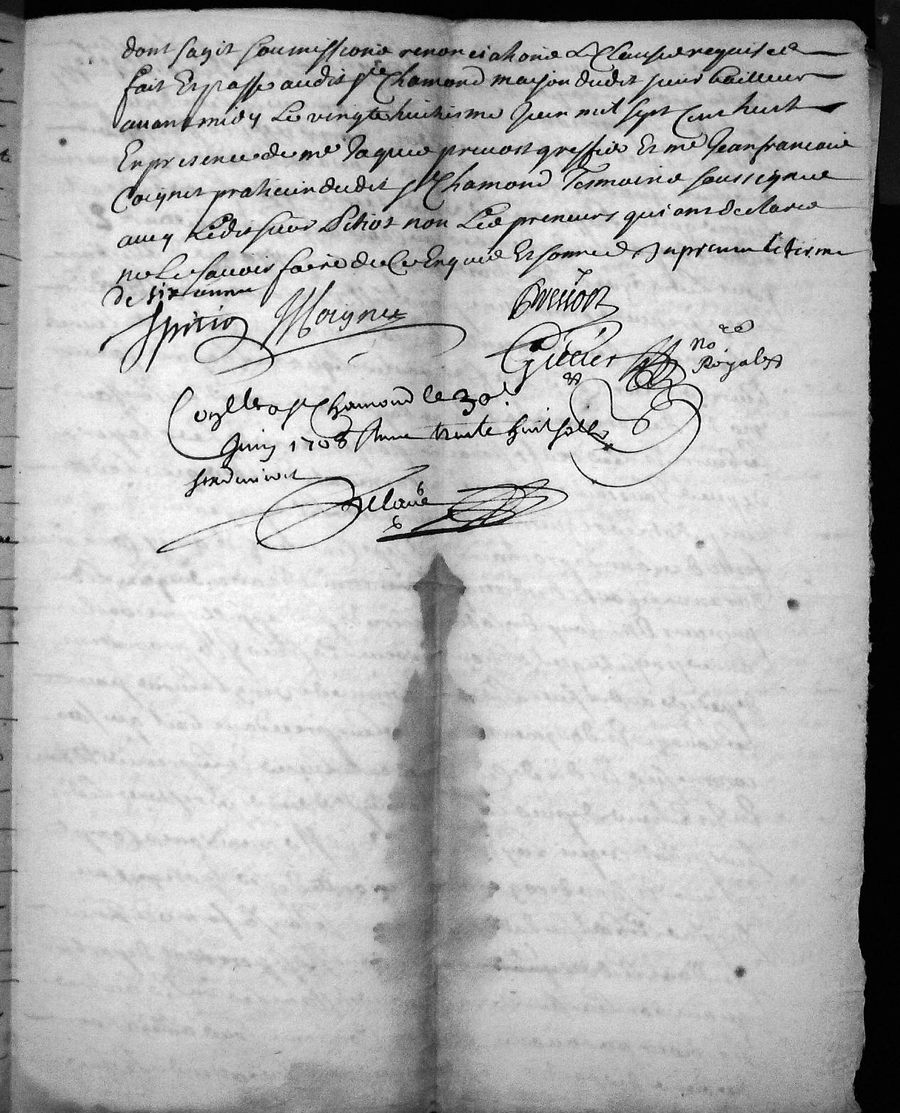 dont sagit soumissions renonciations & Clauses requises
fait Et passé audit st Chamond maison dudit sieur bailleur
avant midy Le vingt huitiesme Juin mil sept Cens huit
En presence de me Jaques prevost greffier Et me Jean francois
Coignet praticien dudit st Chamond Tesmoins soussignes
avec Ledit sieur Pitiot non Les preneurs qui ont declaré
ne Le savoir faire de Ce Enquis Et sommes
de six année
Jpitiot JCoignet Prevost
no re
Royal
Conlle a st Chamond le 30e
Juin 1708 trente huit sols